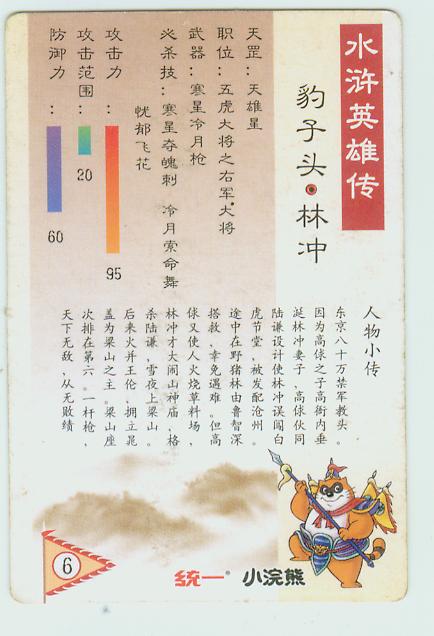 水浒英雄传
豹子头·林冲
天罡：天雄星
职位：五虎大将之右军大将
武器：寒星冷月枪
必杀技：寒星夺魄刺 冷月索命舞
忧郁飞花
攻击力：
95
攻击范围：
20
防御力：
60
人物小传
东京八十万禁军教头。
因为高俅之子高衙内垂
涎林冲妻子，高俅伙同
陆谦设计使林冲误闯白
虎节堂，被发配沧州。
途中在野猪林由鲁智深
搭救，幸免遇难。但高
俅又使人火烧草料场，
林冲才大闹山神庙，格
杀陆谦，雪夜上梁山。
后来火并王伦，拥立晁
盖为梁山之主。梁山座
次排在第六。一杆枪，
天下无敌，从无败绩
6
统一® 小浣熊